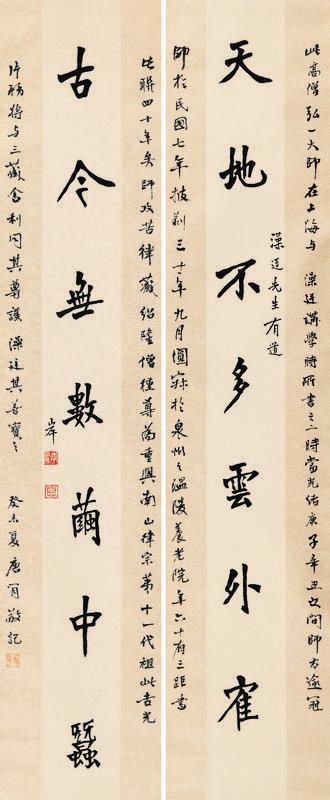 此高僧弘一大師在上海与 澡廷講學時所書之一時當光緒庚子辛丑之間師方逾冠
天地不多雲外寉
澡廷先生有道
師於民國七年披剃三十一年九月圓寂於泉州之温陵養老院年六十有三距書
此聯四十年矣師攻苦律藏紹隆僧種尊為重興南山律宗第十一代祖此吉光
古今無數繭中蠶
岸
片羽將与三藏舍利同其尊護澡廷其善寶之 癸未夏唐肯敬記